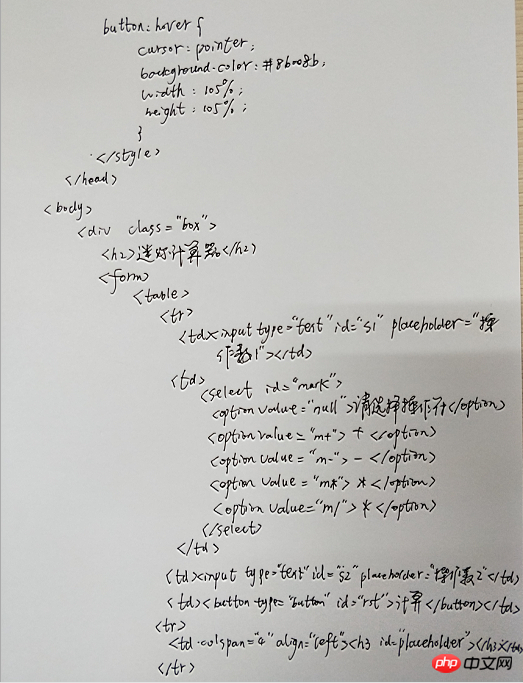 button:hover {
cursor: pointer;
background-color: #8b008b;
width: 105%;
height: 105%;
}
</style>
</head>
<body>
<div class="box">
<h2>迷你计算器</h2>
<form>
<table>
<tr>
<td><input type="text" id="s1" placeholder="操
作数1"></td>
<td>
<select id="mark">
<option value="null">请选择操作符</option>
<option value="m+"> + </option>
<option value="m-"> - </option>
<option value="m*"> * </option>
<option value="m/"> * </option>
</select>
</td>
<td><input type="text" id="s2" placeholder="操作数2"</td>
<td><button type="button" id="rt">计算</button></td>
<tr>
<td colspan="4" align="left"><h3 id="placeholder"></h3></td>
</tr>
php 中文网